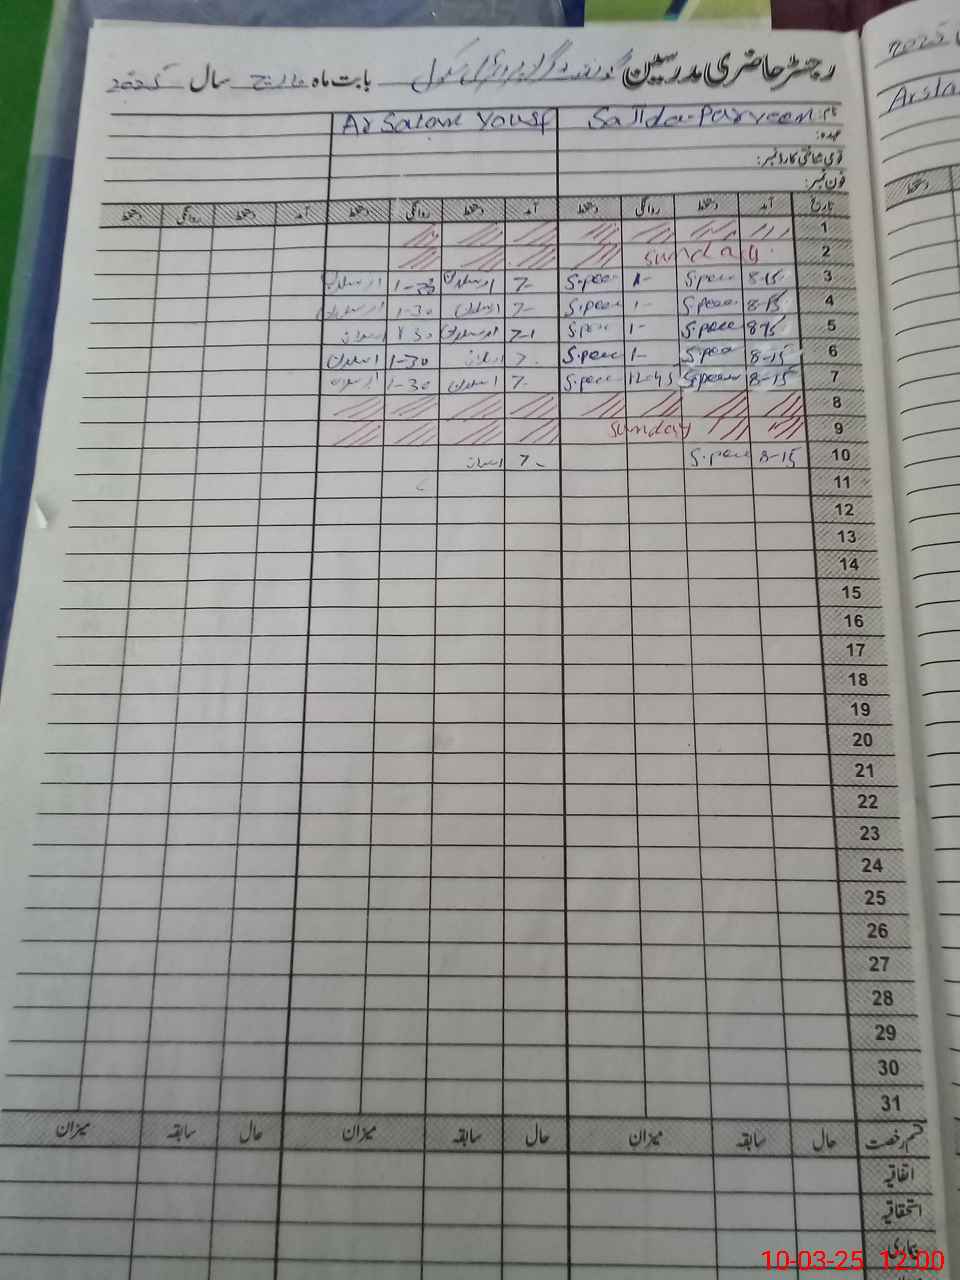 رجسٹر حاضری مدرسین گورنمنٹ گرلز پرائمری سکول بابت ماہ مارچ سال 2025
نام: Sajida Parveen Arsalan Yousf
عہدہ:
قومی شناختی کارڈ نمبر:
فون نمبر:
تاریخ آمد دستخط روانگی دستخط آمد دستخط روانگی دستخط آمد دستخط روانگی دستخط
1
2 Sunday
3 8-15 S.peen 1- S.peen 7- ارسلان 1-30 ارسلان
4 8-15 S.peen 1- S.peen 7- ارسلان 1-30 ارسلان
5 8-15 S.peen 1- S.peen 7- ارسلان 1-30 ارسلان
6 8-15 S.peen 1- S.peen 7- ارسلان 1-30 ارسلان
7 8-15 S.peen 12-45 S.peen 7- ارسلان 1-30 ارسلان
8
9 Sunday
10 8-15 S.peen 7- ارسلان
11
12
13
14
15
16
17
18
19
20
21
22
23
24
25
26
27
28
29
30
31
قسم رخصت حال سابقہ میزان حال سابقہ میزان حال سابقہ میزان
اتفاقیہ
استحقاقیہ
بیماری
2025
Arsla
دستخط
10-03-25 12:00